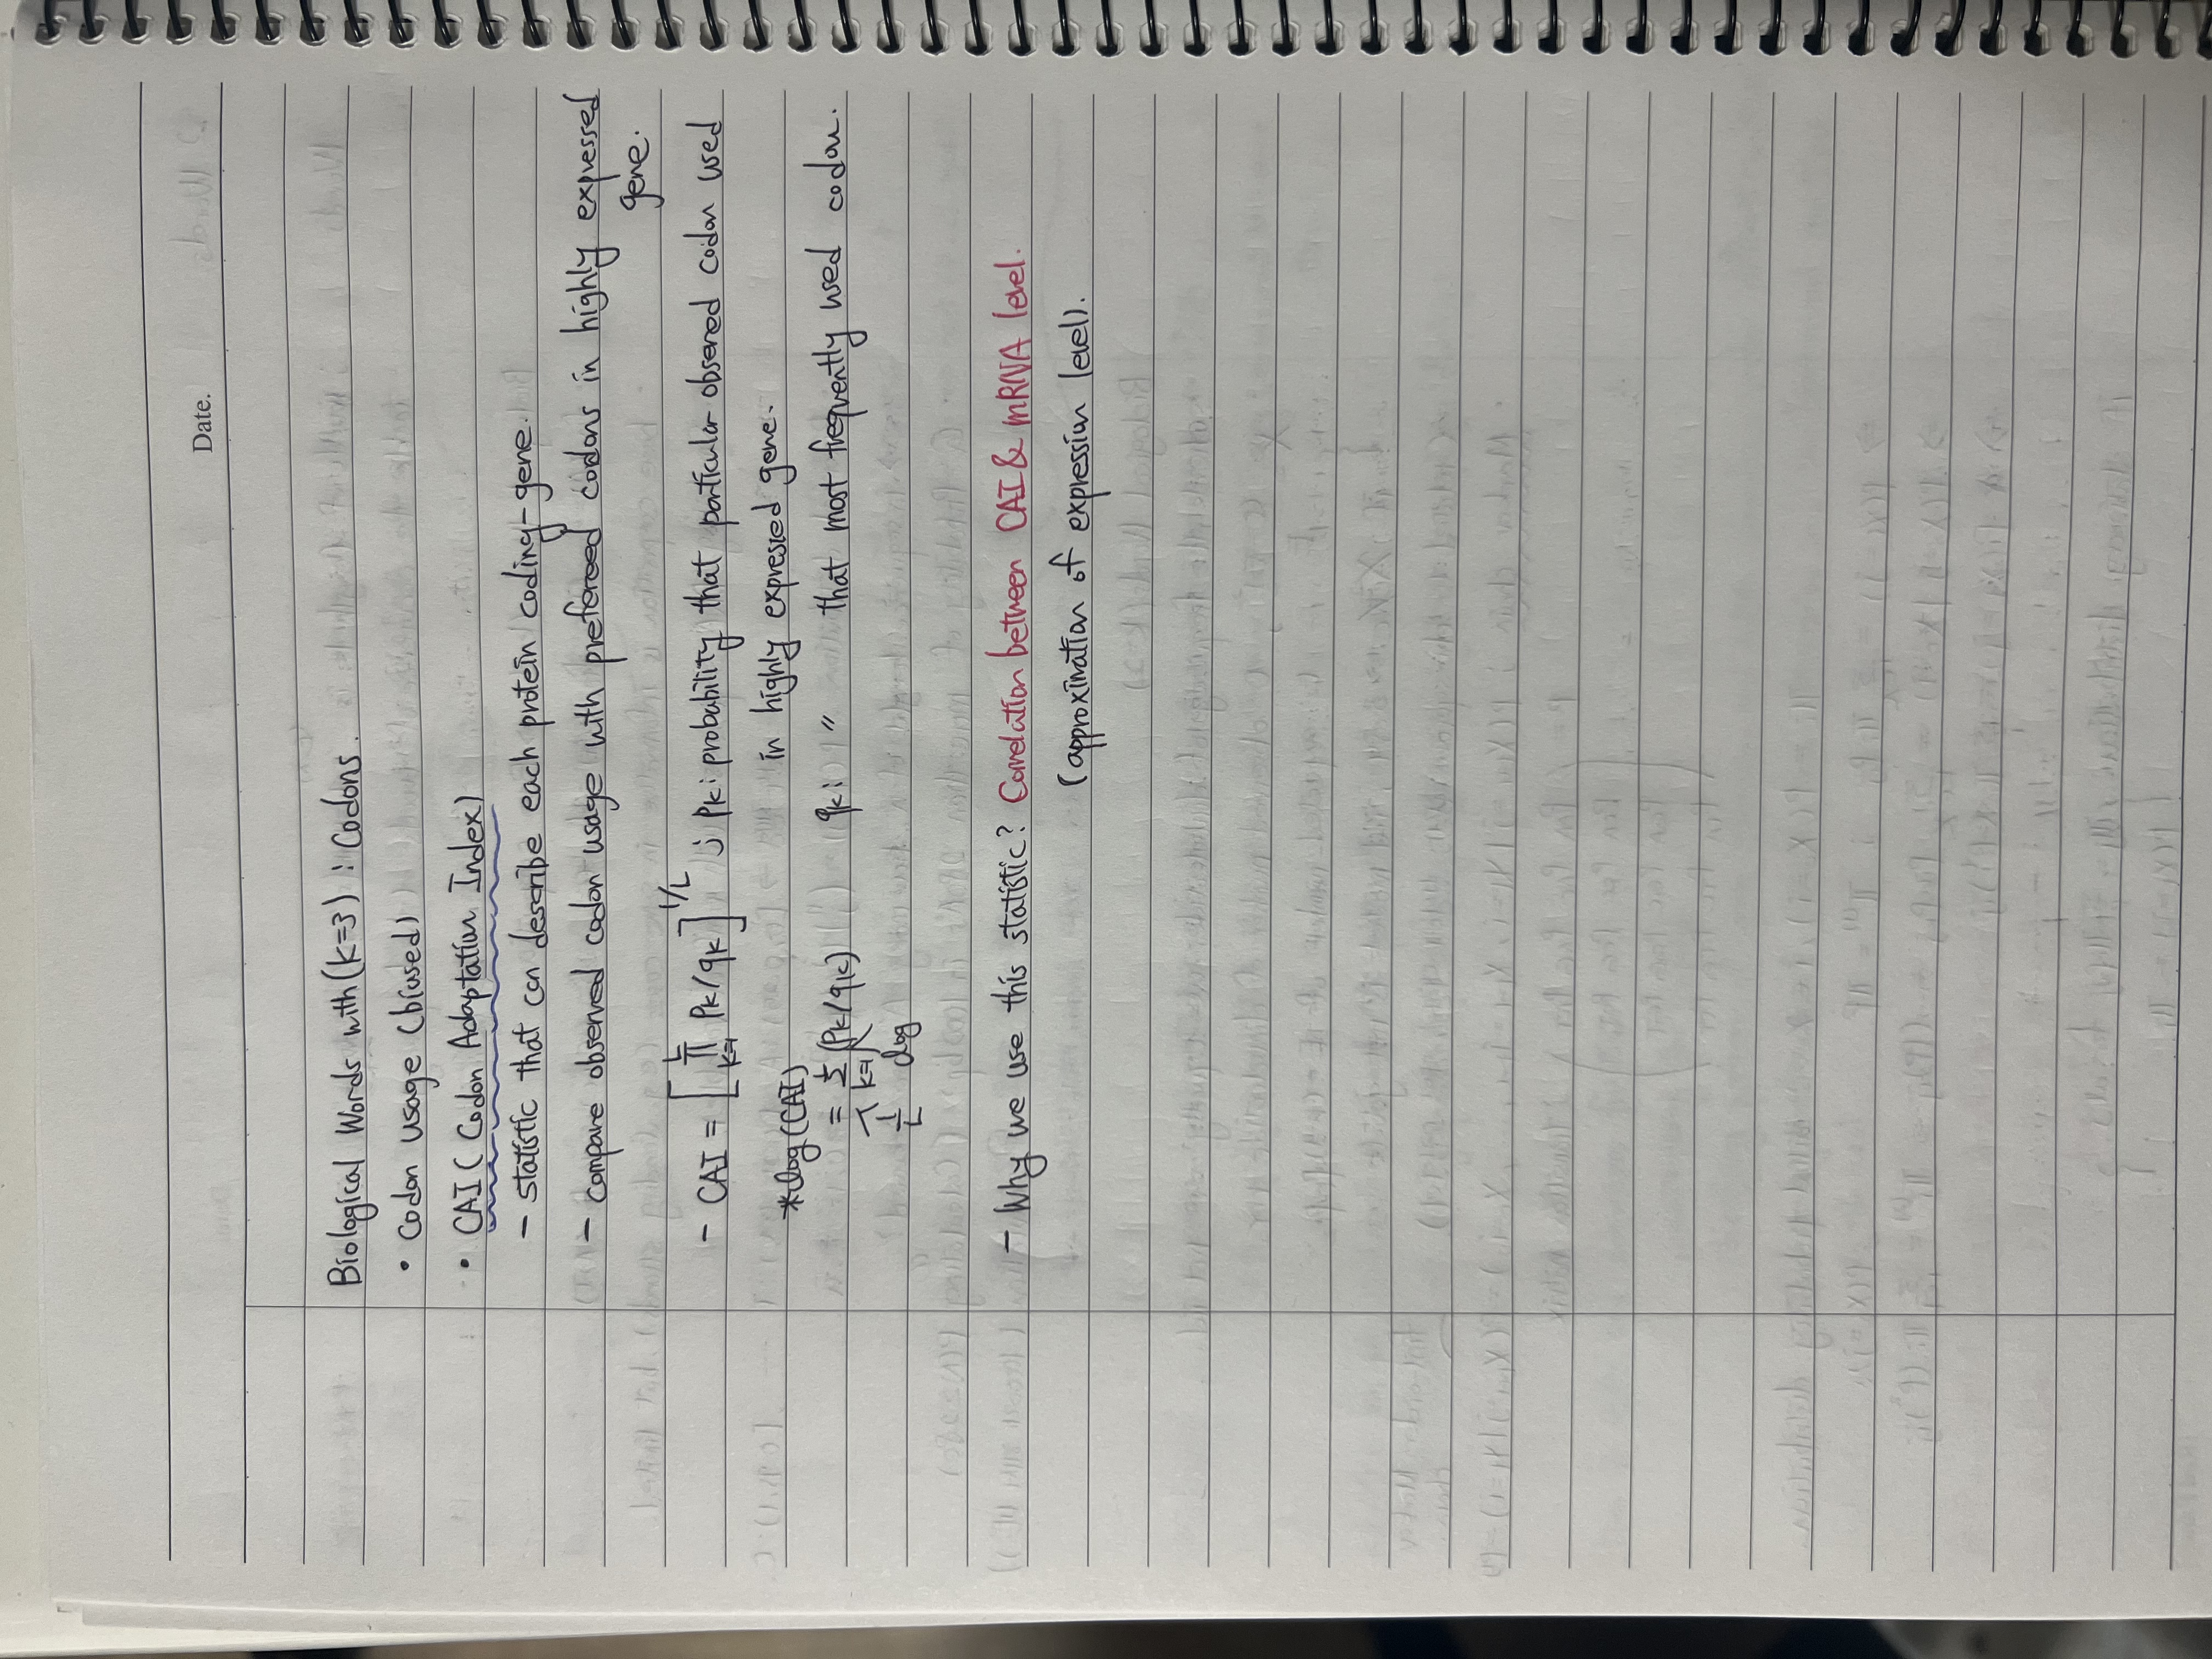 Date.
Biological Words with (k=3) : Codons.
• Codon usage (biased)
• CAI ( Codon Adaptation Index)
- statistic that can describe each protein coding-gene.
- compare observed codon usage with prefereed codons in highly expressed
gene.
- CAI = [ L ∏ k=1 Pk/qk ] 1/L ; Pk : probability that particular observed codon used
in highly expressed gene.
*log(CAI)
= L Σ k=1 (Pk/qk) qk : 〃 that most frequently used codon.
1/L log
- Why we use this statistic? Correlation between CAI & mRNA level.
(approximation of expression level).